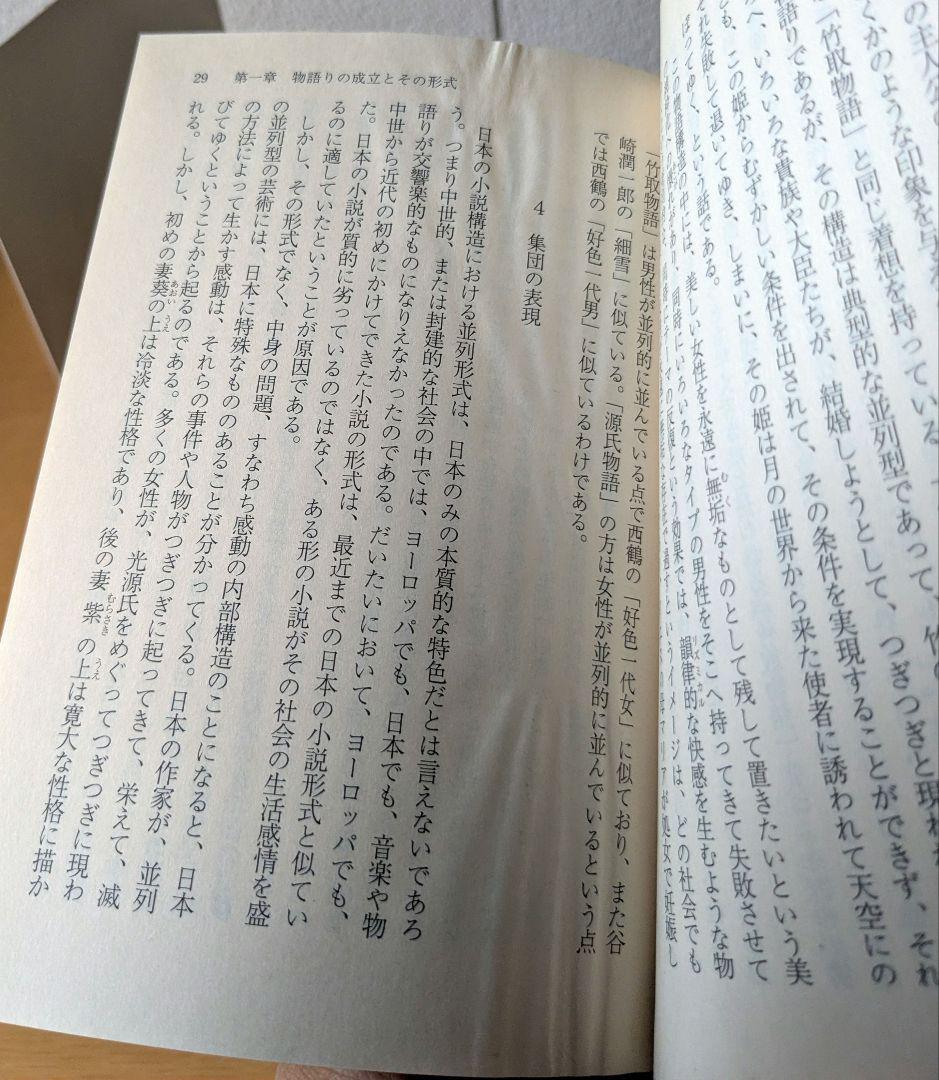 の主人公の
くかのような印象を与え
「竹取物語」と同じ着想を持っている。
語りであるが、その構造は典型的な並列型であって、竹の
へ、いろいろな貴族や大臣たちが、結婚しようとして、つぎつぎと現れ
とも、この姫からむずかしい条件を出されて、その条件を実現することができず、それ
それ失敗して退いてゆき、しまいに、その姫は月の世界から来た使者に誘われて天空にの
ぼってゆく、という話である。
この物語構造の中には、美しい女性を永遠に無垢なものとして残して置きたいという美
願いがあり、同時にいろいろなタイプの男性をそこへ持ってきて失敗させて
テーマの反復という効果では、韻律的な快感を生むような物
というイメージは、どの社会でも
マリアが処女で妊娠し
29 第一章 物語りの成立とその形式
「竹取物語」は男性が並列的に並んでいる点で西鶴の「好色一代女」に似ており、また谷
崎潤一郎の「細雪」に似ている。「源氏物語」の方は女性が並列的に並んでいるという点
では西鶴の「好色一代男」に似ているわけである。
4 集団の表現
日本の小説構造における並列形式は、日本のみの本質的な特色だとは言えないであろ
う。つまり中世的、または封建的な社会の中では、ヨーロッパでも、日本でも、音楽や物
語りが交響楽的なものになりえなかったのである。だいたいにおいて、ヨーロッパでも、
中世から近代の初めにかけてできた小説の形式は、最近までの日本の小説形式と似てい
た。日本の小説が質的に劣っているのではなく、ある形の小説がその社会の生活感情を盛
るのに適していたということが原因である。
しかし、その形式でなく、中身の問題、すなわち感動の内部構造のことになると、日本
の並列型の芸術には、日本に特殊なもののあることが分かってくる。日本の作家が、並列
の方法によって生かす感動は、それらの事件や人物がつぎつぎに起ってきて、栄えて、滅
びてゆくということから起るのである。多くの女性が、光源氏をめぐってつぎつぎに現わ
れる。しかし、初めの妻葵の上は冷淡な性格であり、後の妻紫の上は寛大な性格に描か